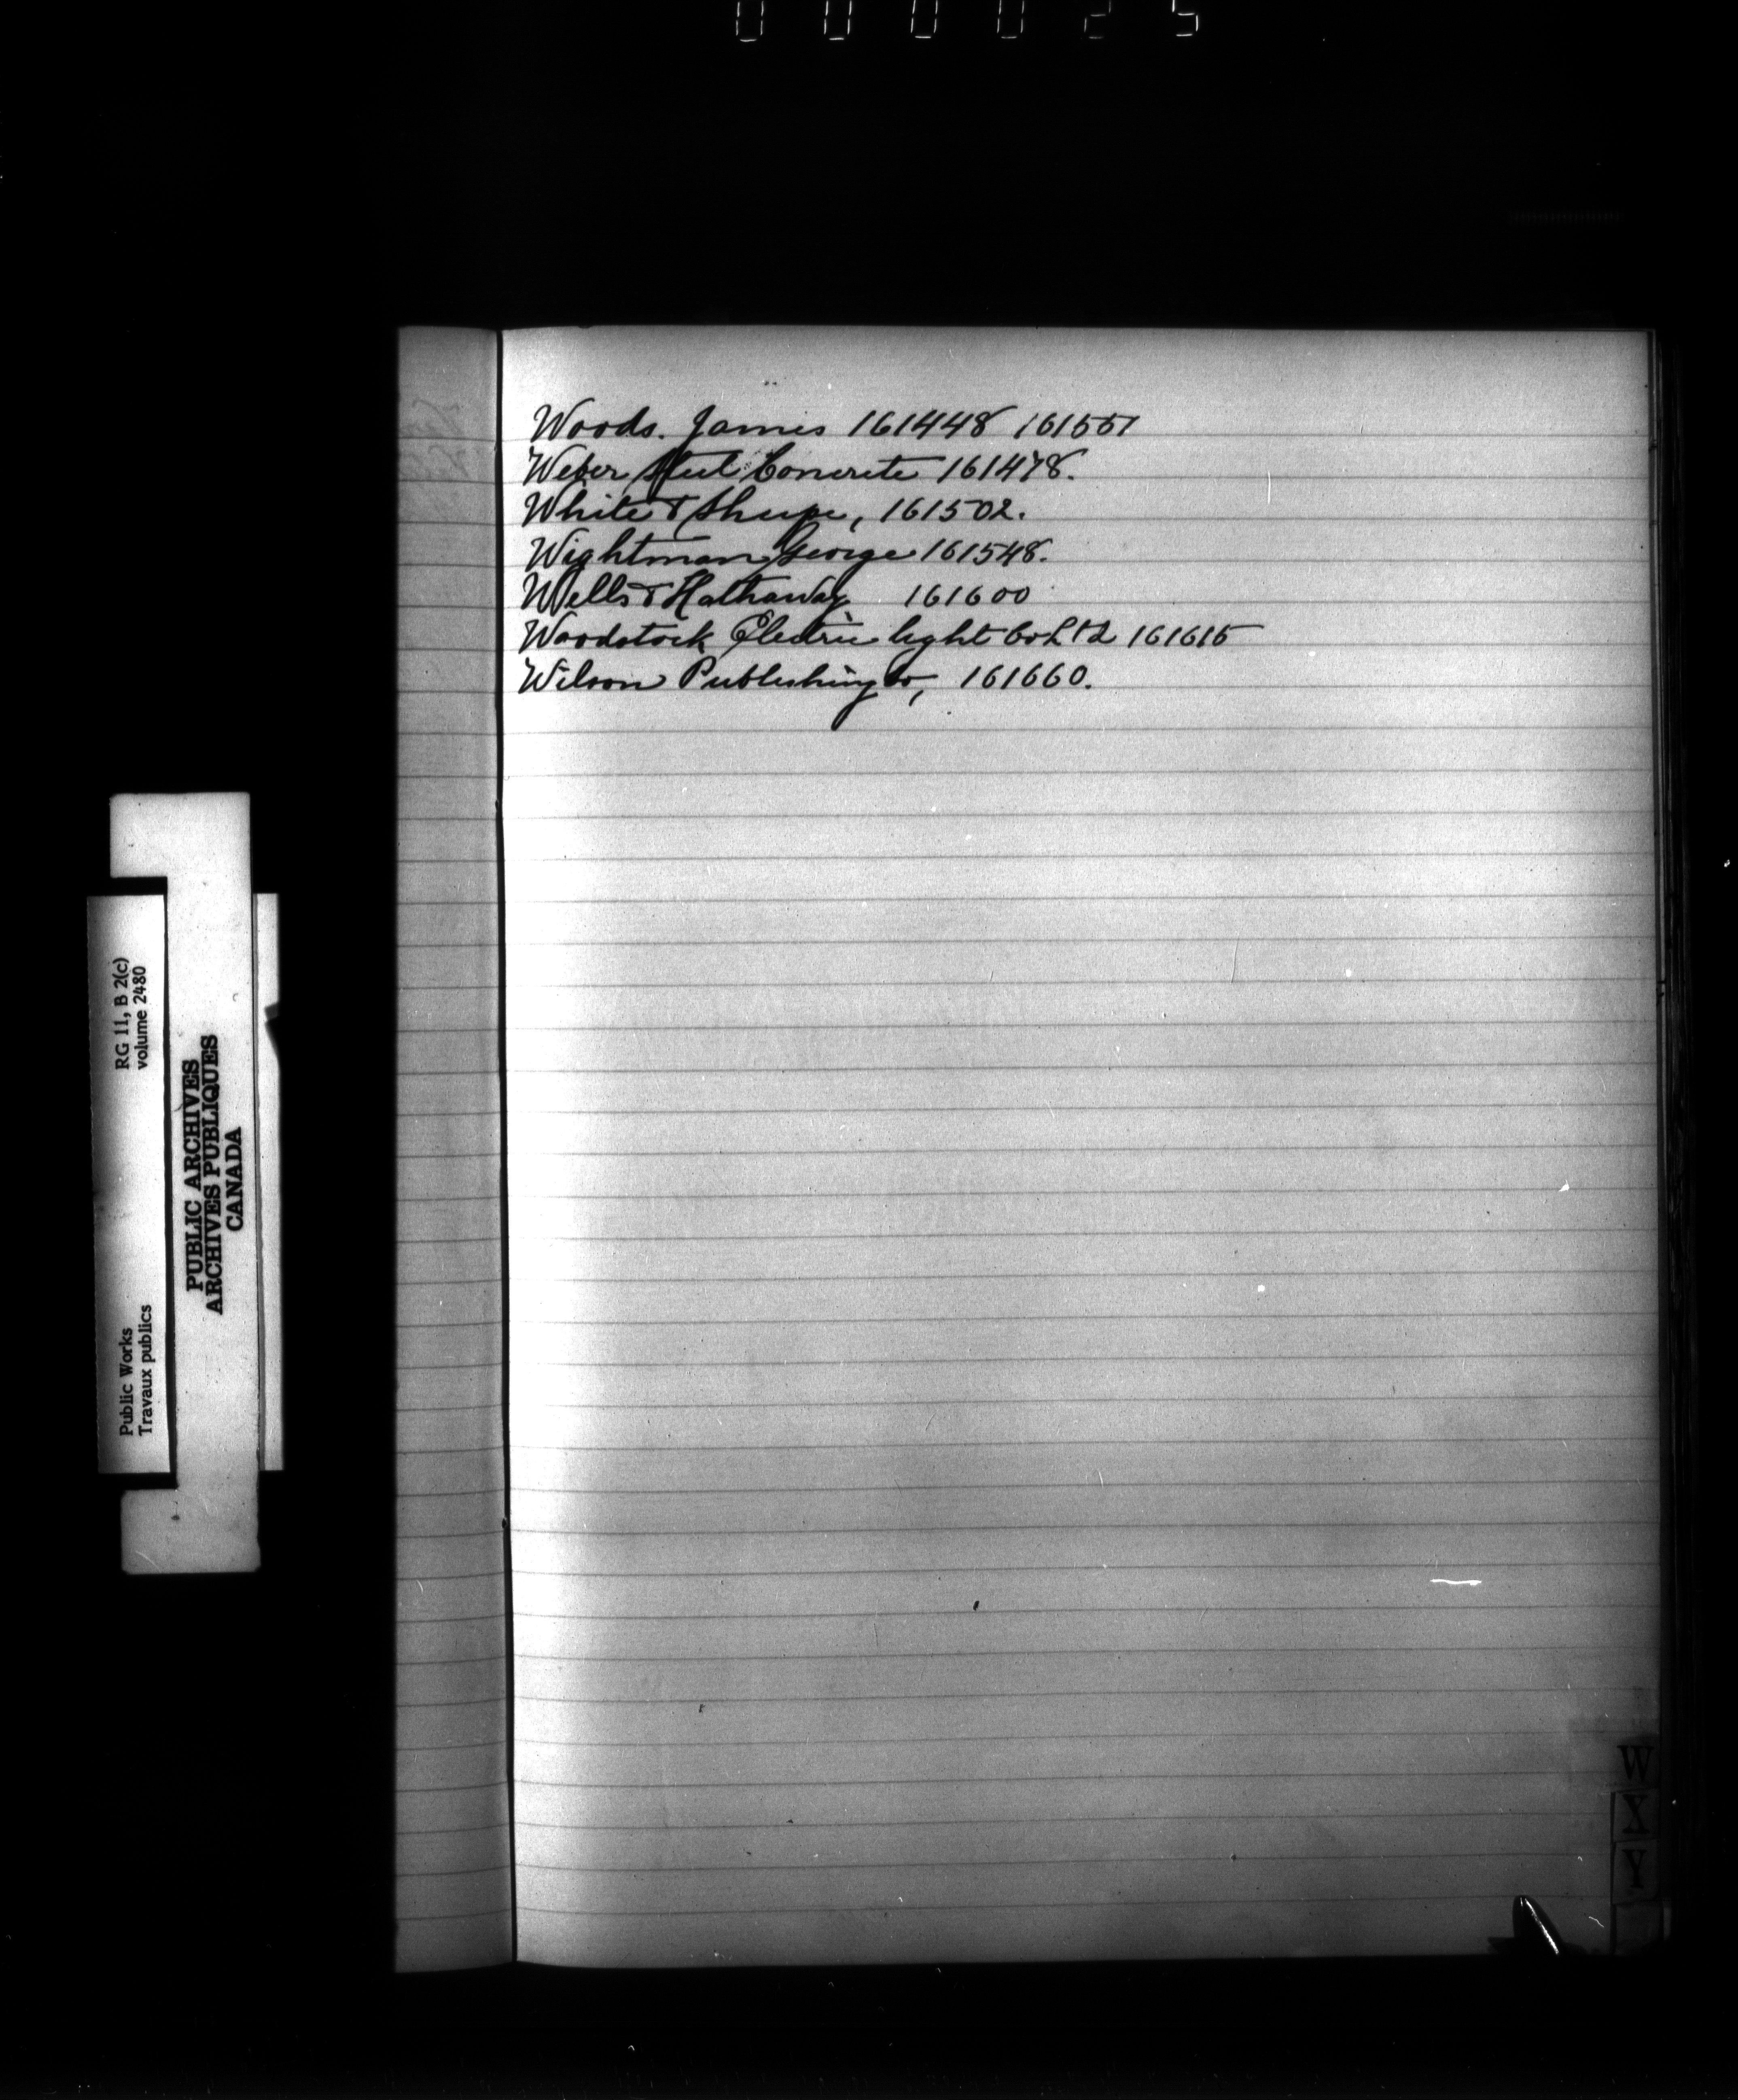 000025
Woods. James 161448 161551
Weber Steel Concrete 161478.
White & Sharpe, 161502.
Wightman George 161548.
Wells & Hathaway 161600
Woodstock Electric light Co Ltd 161615
Wilson Publishing Co, 161660.
RG 11, B 2(c)
volume 2480
Public Works
Travaux publics
PUBLIC ARCHIVES
ARCHIVES PUBLIQUES
CANADA
W
X
Y